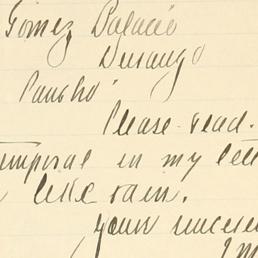 Gomez Palacio
Durango
Pancho
Please read.
temporal in my lett
like rain.
your sincere